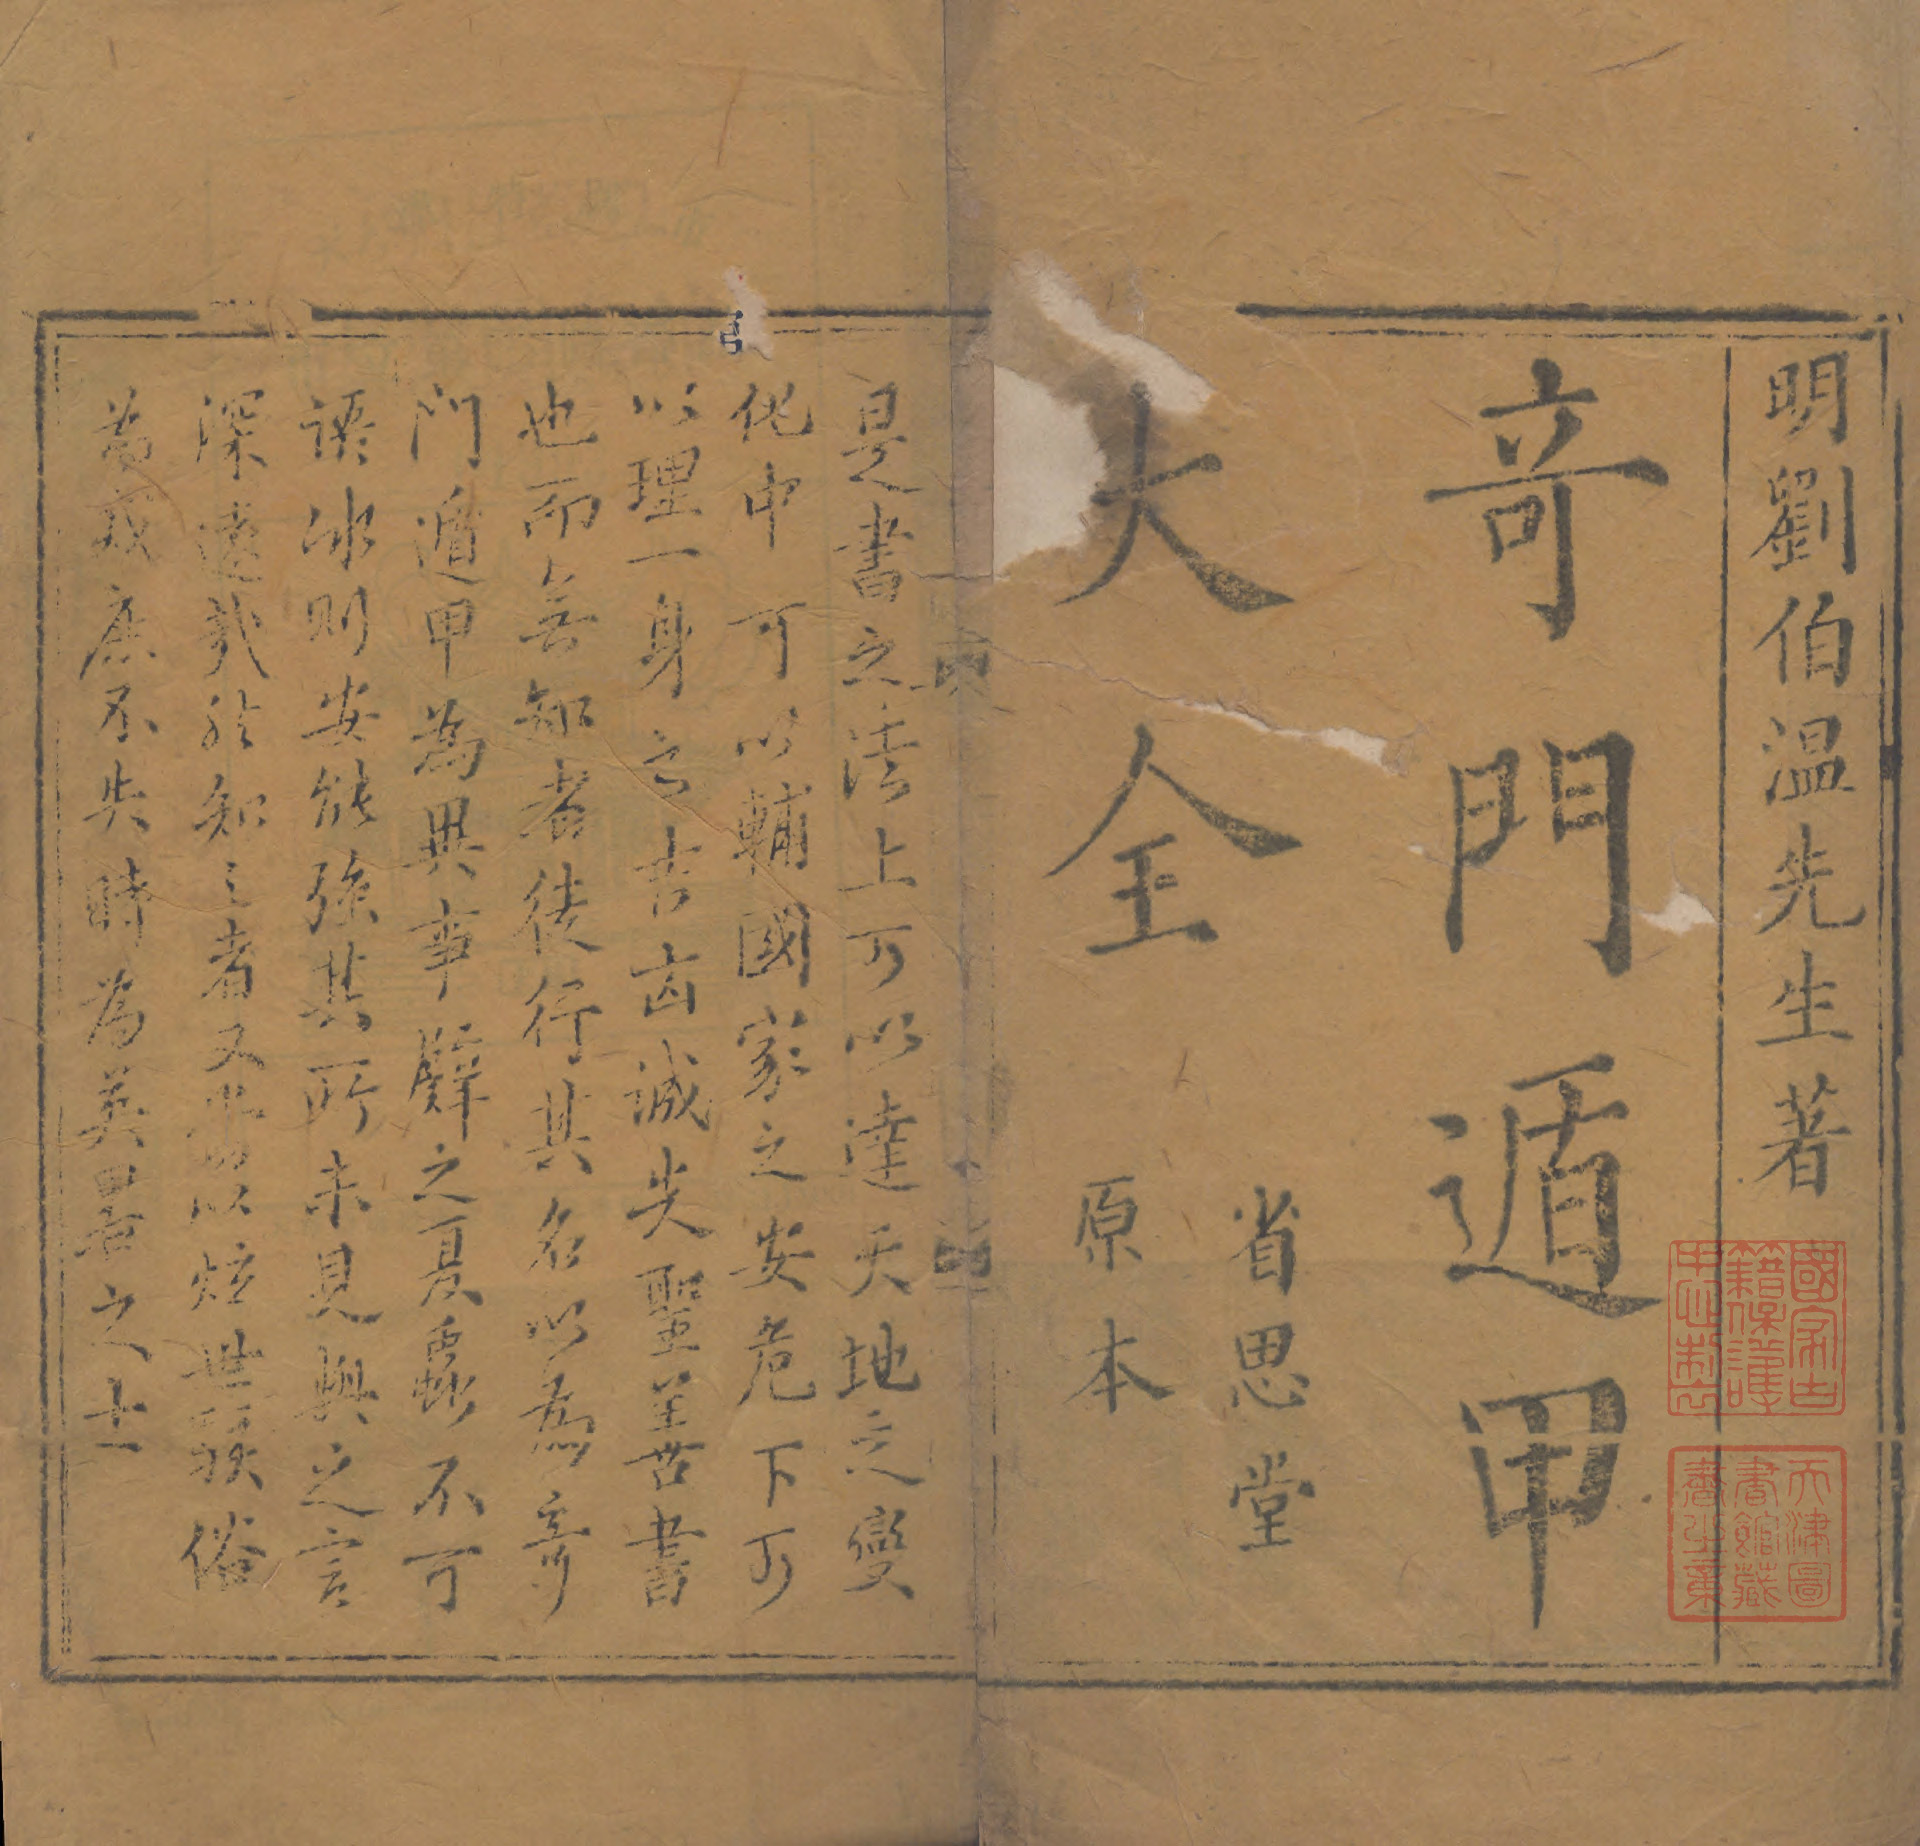 明劉伯温先生著
竒門遁甲
大全
省思堂
原本
國家古
籍保護
中心制
天津圖
書館藏
書之章
是書之法上可以達天地之變
化中可以輔國家之安危下可
以理一身之吉凶誠失聖〓苦書
也而無知者徒行其名以為竒
門遁甲為異事辟之夏蟲不可
語冰則安能强其所未見與之言
深遠哉於知之者又以炫世駭俗
為戒庶不失時為英君之士